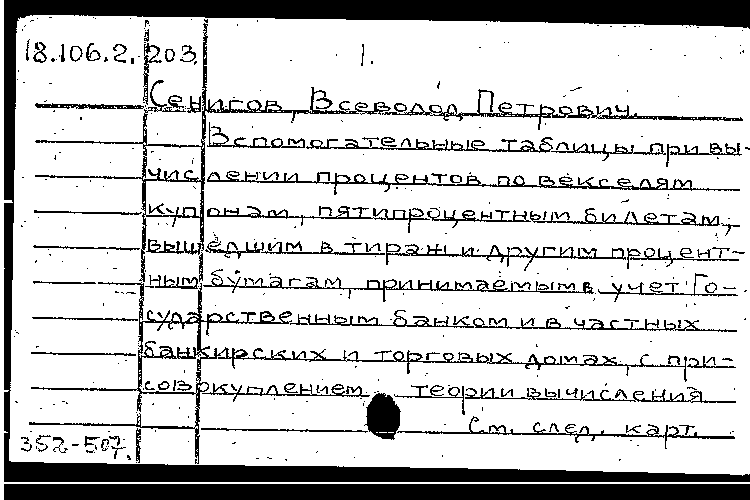 18.106.2.203. 1.
Сенигов, Всеволод Петрович.
Вспомогательные таблицы при вы-
числении процентов по векселям
купонам, пятипроцентным билетам,
вышедшим в тираж и другим процент-
ным бумагам, принимаемым в учет Го-
сударственным банком и в частных
банкирских и торговых домах, с при-
совокуплением теории вычисления
См. след. карт.
352-507.